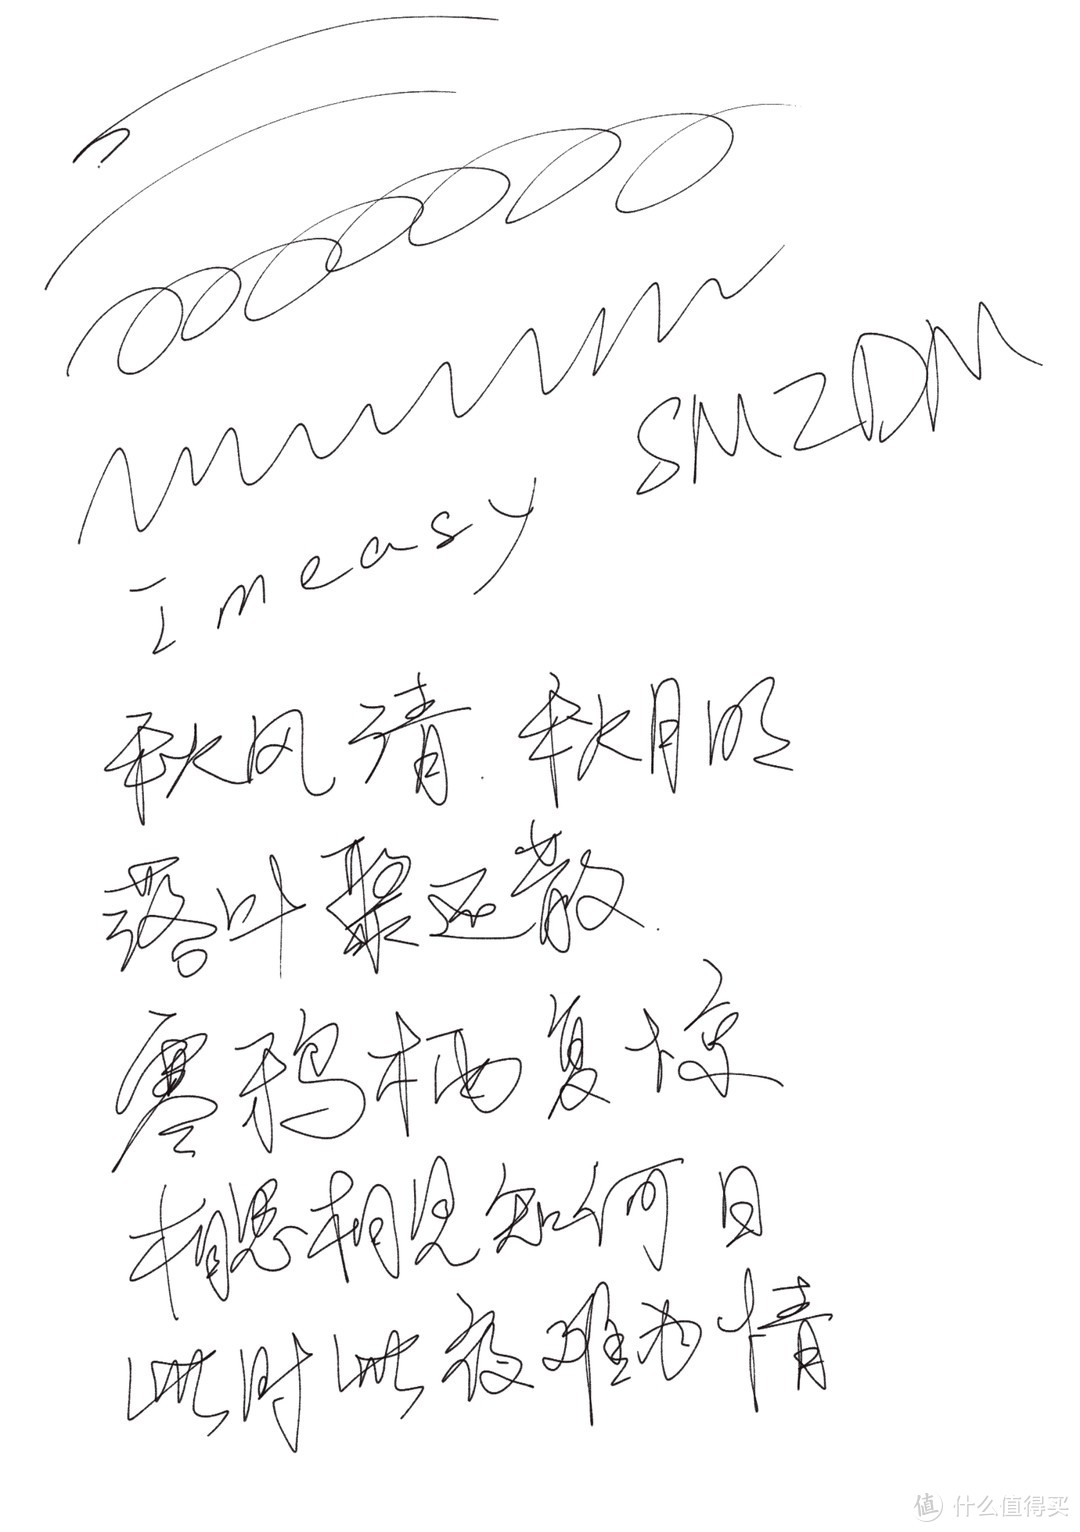 SMZDM
I m easy
秋风清.秋月明
落叶聚还散.
寒鸦栖复惊
相思相见知何日
此时此夜难为情
值 什么值得买